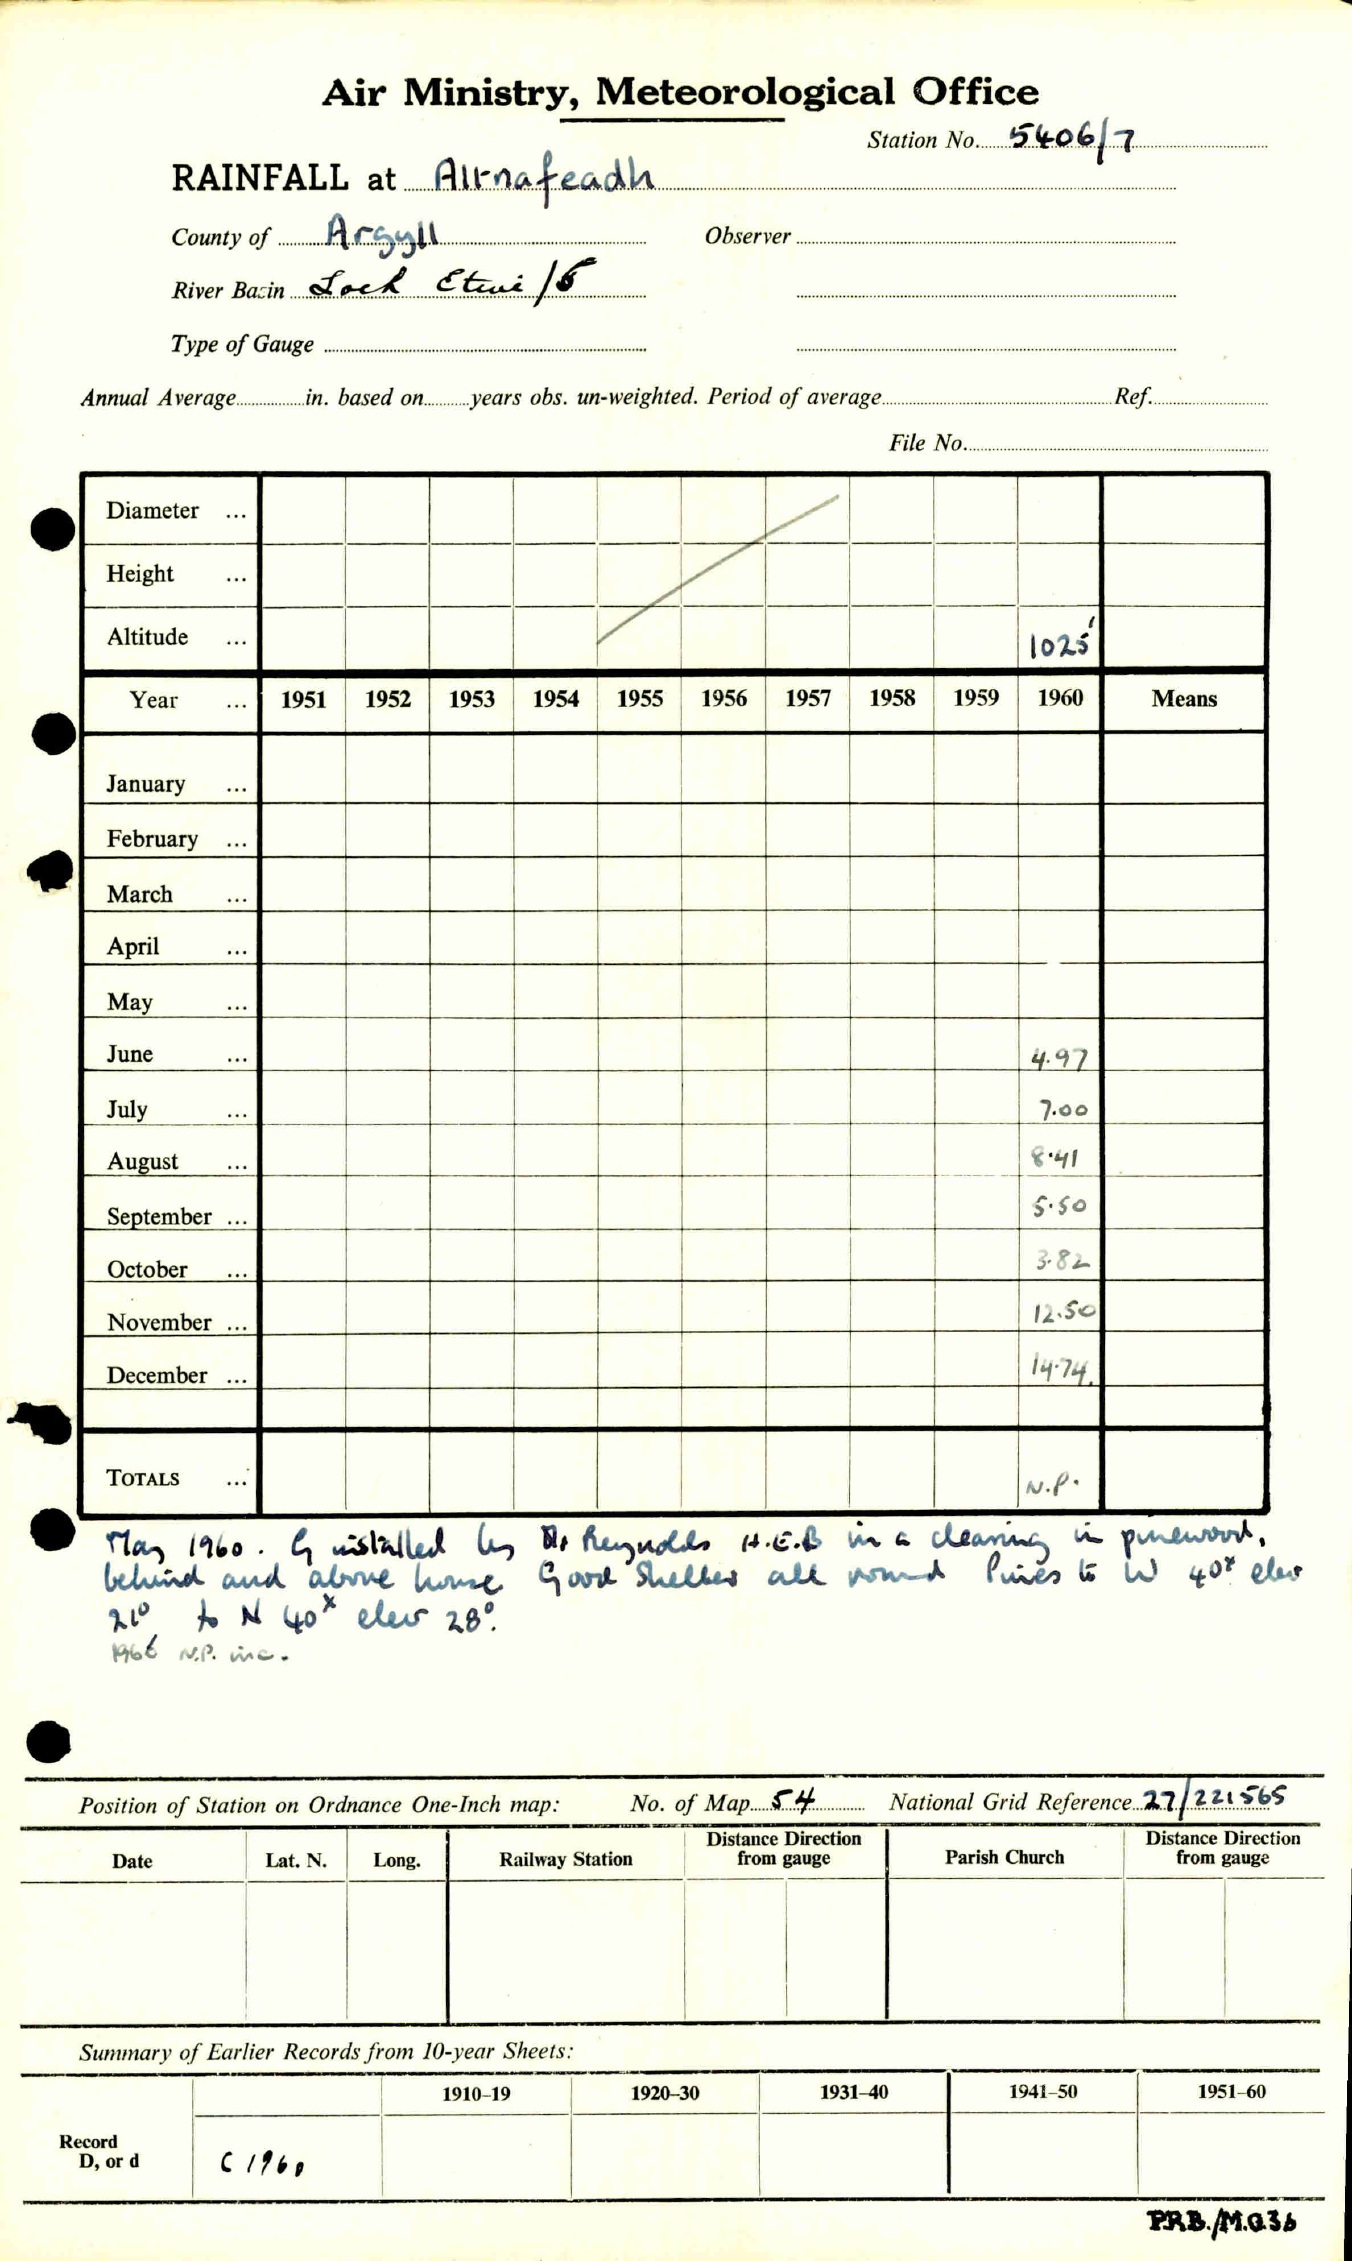 Air Ministry, Meteorological Office
Station No. 5406/7
RAINFALL at Altnafeadh
County of Argyll Observer
River Basin Loch Etive /5
Type of Gauge
Annual Average in. based on years obs. un-weighted. Period of average Ref.
File No.
Diameter ...
Height ...
Altitude ... 1025'
Year ... 1951 1952 1953 1954 1955 1956 1957 1958 1959 1960 Means
January ...
February ...
March ...
April ...
May ...
June ... 4.97
July ... 7.00
August ... 8.41
September ... 5.50
October ... 3.82
November ... 12.50
December ... 14.74
TOTALS ... N.P.
May 1960. G installed by Mr Reynolds H.E.B in a clearing in pinewood,
behind and above house. Good Shelter all round Pines to W 40x elev
21° to N 40x elev 28°.
1966 N.P. inc.
Position of Station on Ordnance One-Inch map: No. of Map 54 National Grid Reference 27/221565
Date Lat. N. Long. Railway Station Distance Direction from gauge Parish Church Distance Direction from gauge
Summary of Earlier Records from 10-year Sheets:
1910-19 1920-30 1931-40 1941-50 1951-60
Record
D, or d C 1960
P.R.B./M.O.36